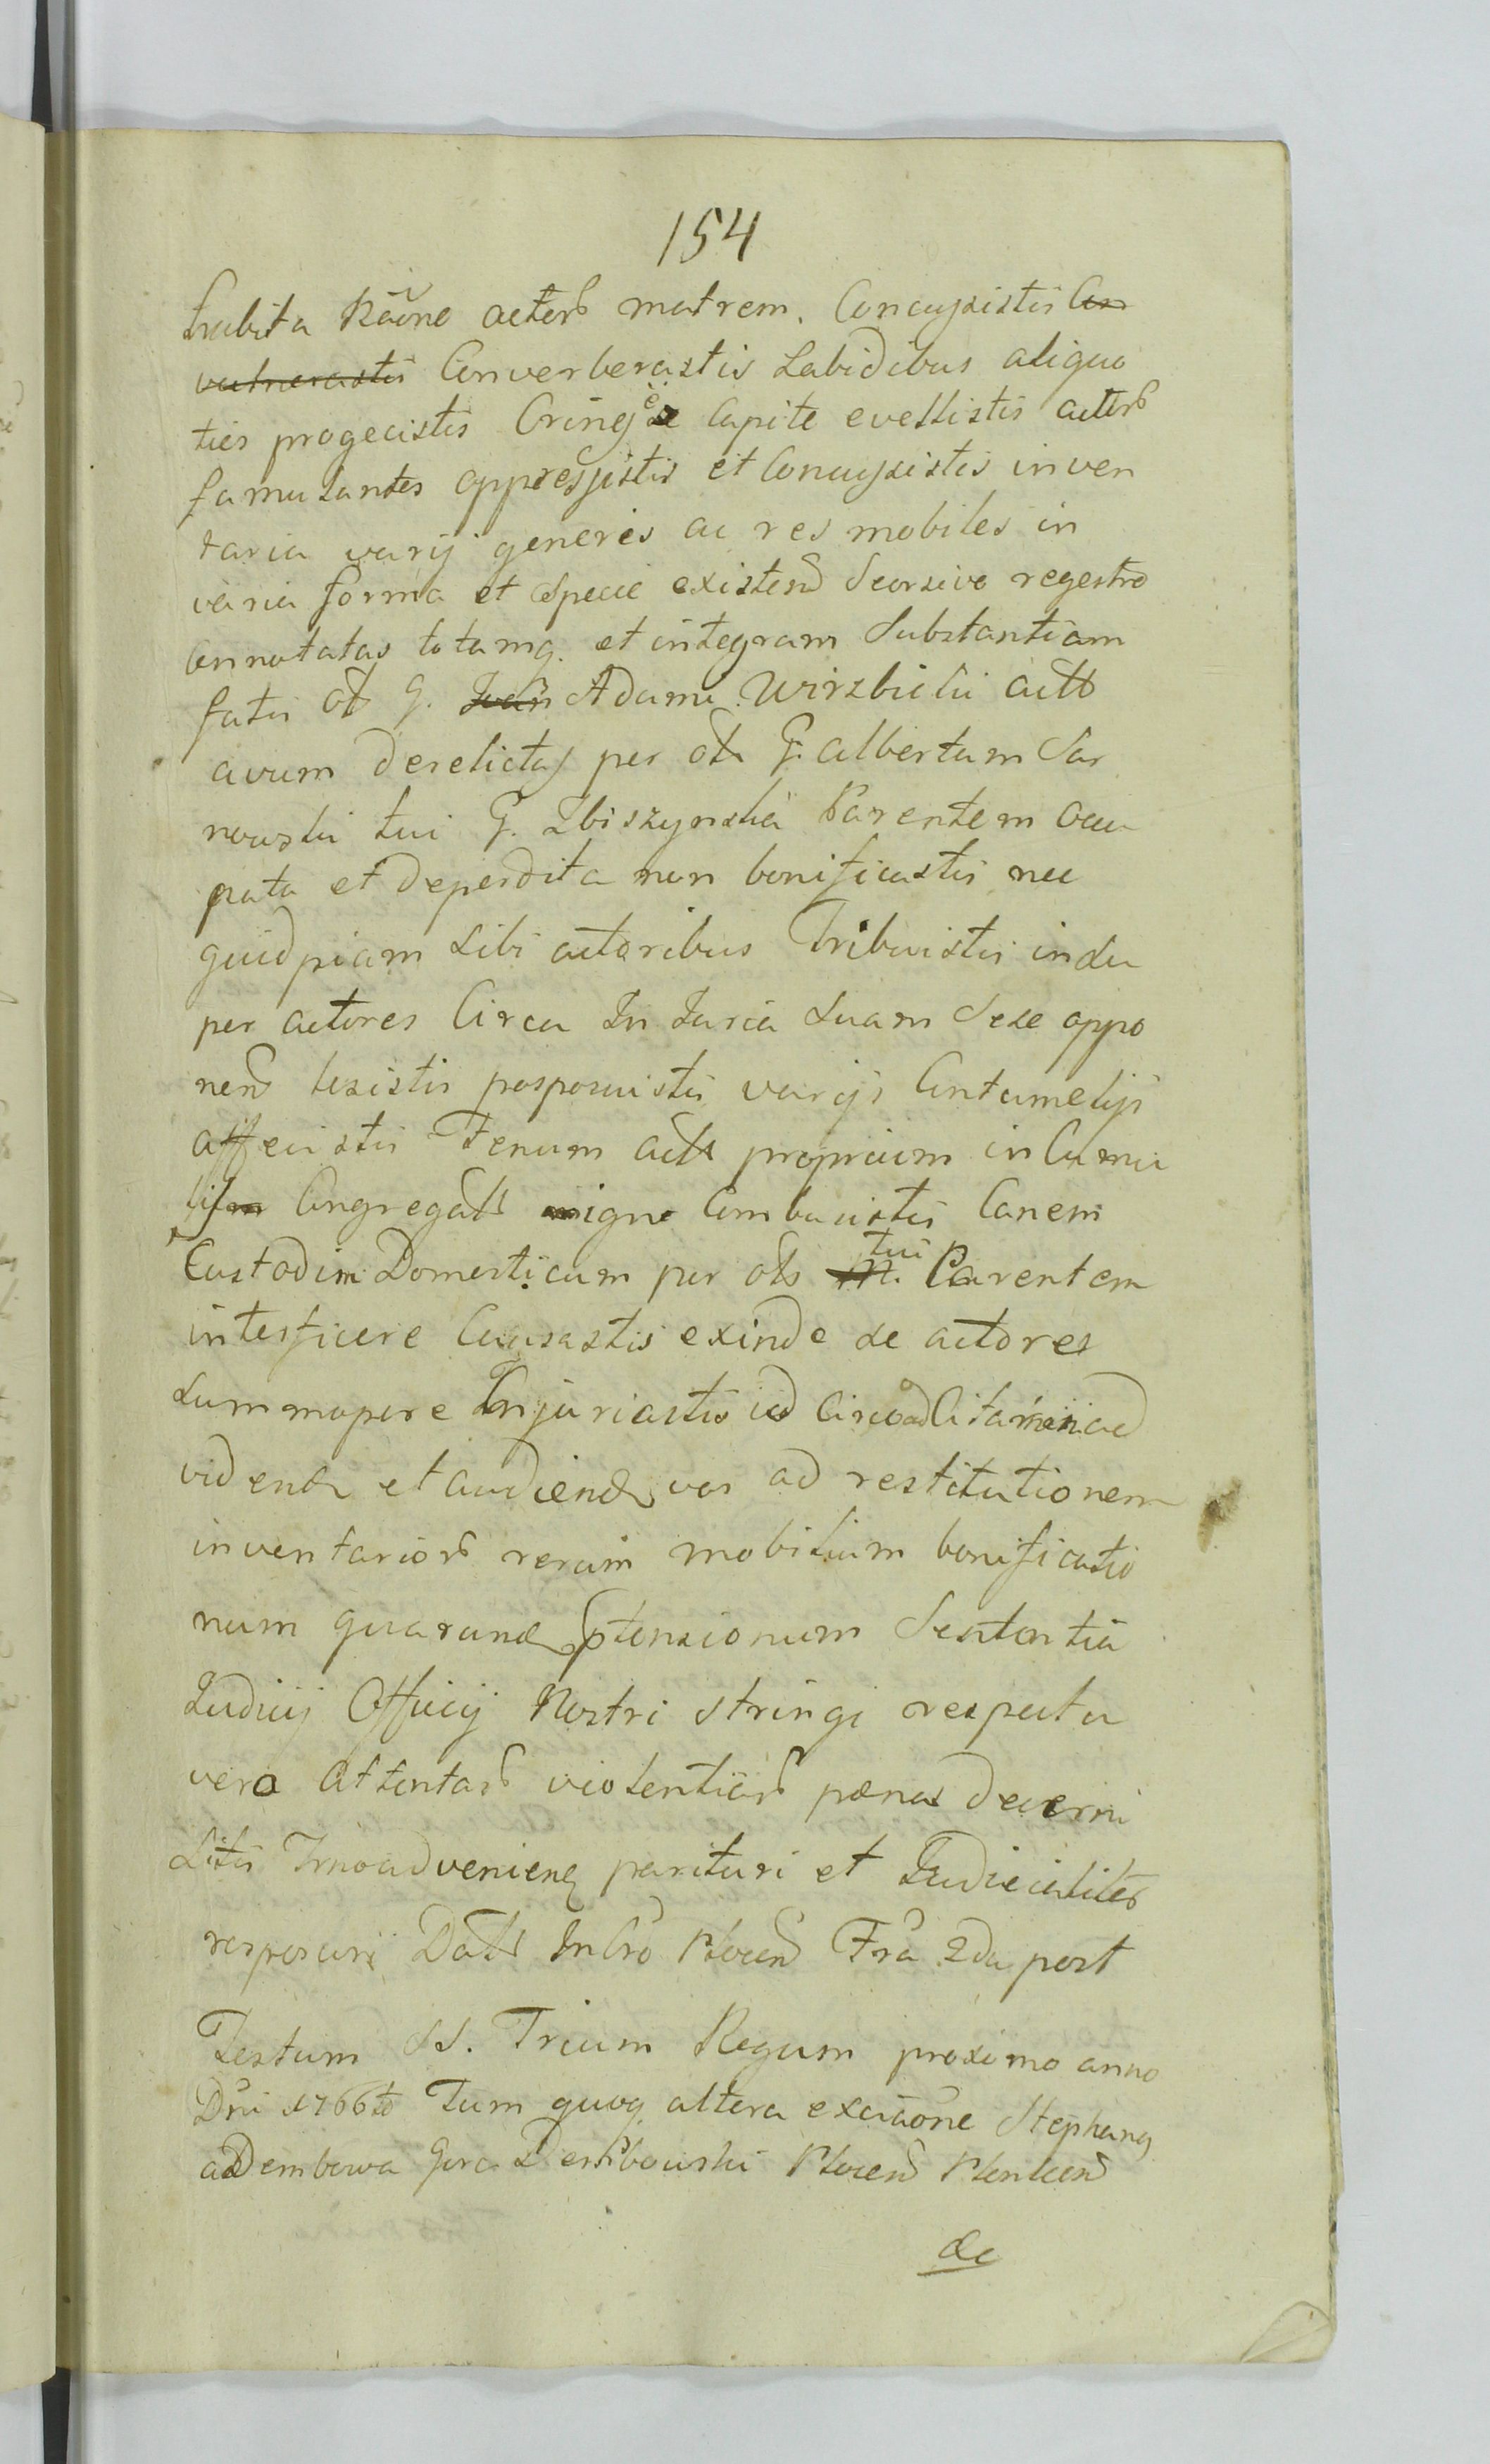 154
habita Rãõne actor matrem. Concussistis Con
vulnerastis Converberastis Labidibus aliquo
ties progecistis Crines e Capite evellistis actor
famulantes oppressistis et Concussistis inven
taria varij generis ac res mobiles in
varia forma et specie existen Seorsivo regestro
Connotatas totamq. et integram Substantiam
fatis ol G. Adami Wirzbicki act
avum derelictas per ol G. Albertum Sar
nowski tui G. Zbiszynska Parentem occu
pata et deperdita non bonificastis nec
quidpiam sibi actoribus Tribuistis insu
per actores Circa In Iuria suam Sese oppo
nen lesistis posposuistis varijs Contumelijs
affecistis Fenum act proprium in Cumu
Congregat igne Combusistis Canem
Custodem Domesticum per ol tui Parentem
interficere Causastis exinde se actores
summopere Injuriastis id Circo ad Citamini ad
vidend et audiend vos ad restitutionem
inventarior rerum mobilium bonificatio
num quarund ptensionum Sententia
Iudicij Officij Nostri stringi respectu
vero Attentar violentiar pœnas decerni
Sitis Trnoadvenien parituri et Iudicialiter
resposuri Dat In Cro Plocen Fra 2da post
Festum SS. Trium Regum proximo anno
Dñi 1766to Tum quoq altera exaãone Stephanq
a Dembowa Gora Dembowski Plocen Plonscen
&c